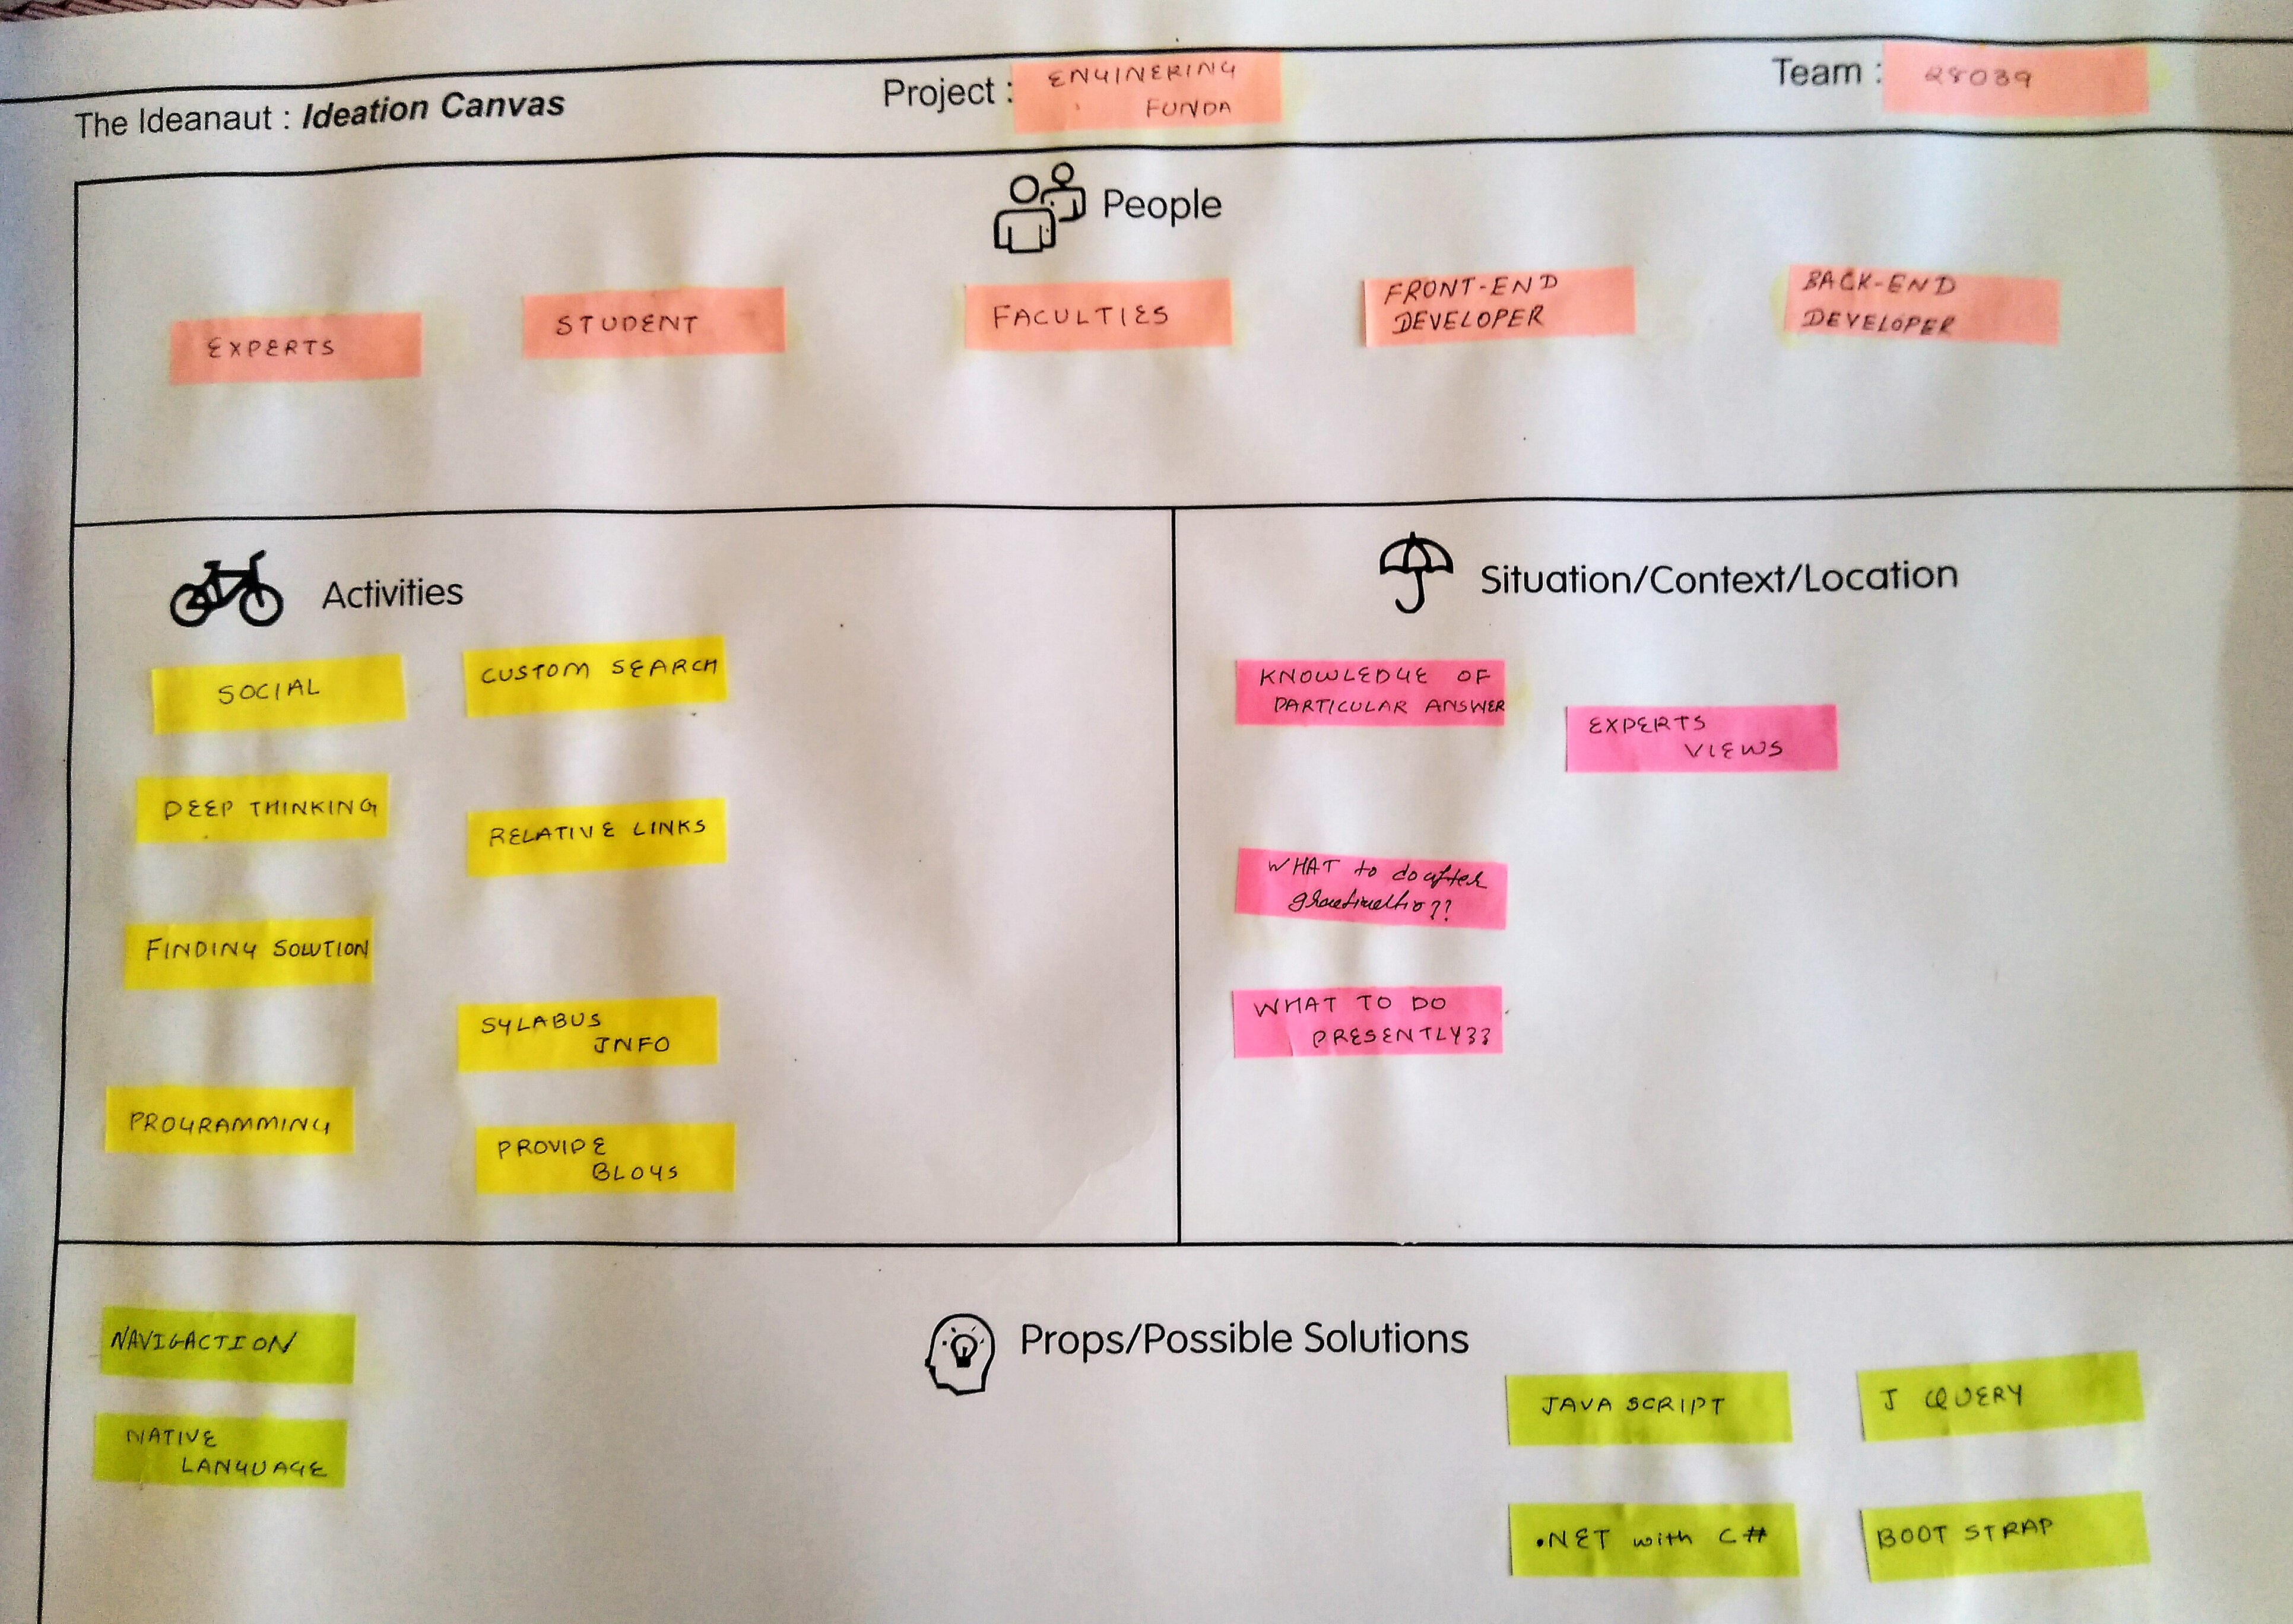 The Ideanaut : Ideation Canvas
Project :
ENGINERING
FUNDA
Team :
28039
People
EXPERTS
STUDENT
FACULTIES
FRONT-END
DEVELOPER
BACK-END
DEVELOPER
Activities
SOCIAL
CUSTOM SEARCH
DEEP THINKING
RELATIVE LINKS
FINDING SOLUTION
SYLABUS
INFO
PROGRAMMING
PROVIDE
BLOGS
Situation/Context/Location
KNOWLEDGE OF
PARTICULAR ANSWER
EXPERTS
VIEWS
WHAT to do after
??
WHAT TO DO
PRESENTLY??
Props/Possible Solutions
NAVIGACTION
NATIVE
LANGUAGE
JAVA SCRIPT
J QUERY
.NET with C#
BOOT STRAP